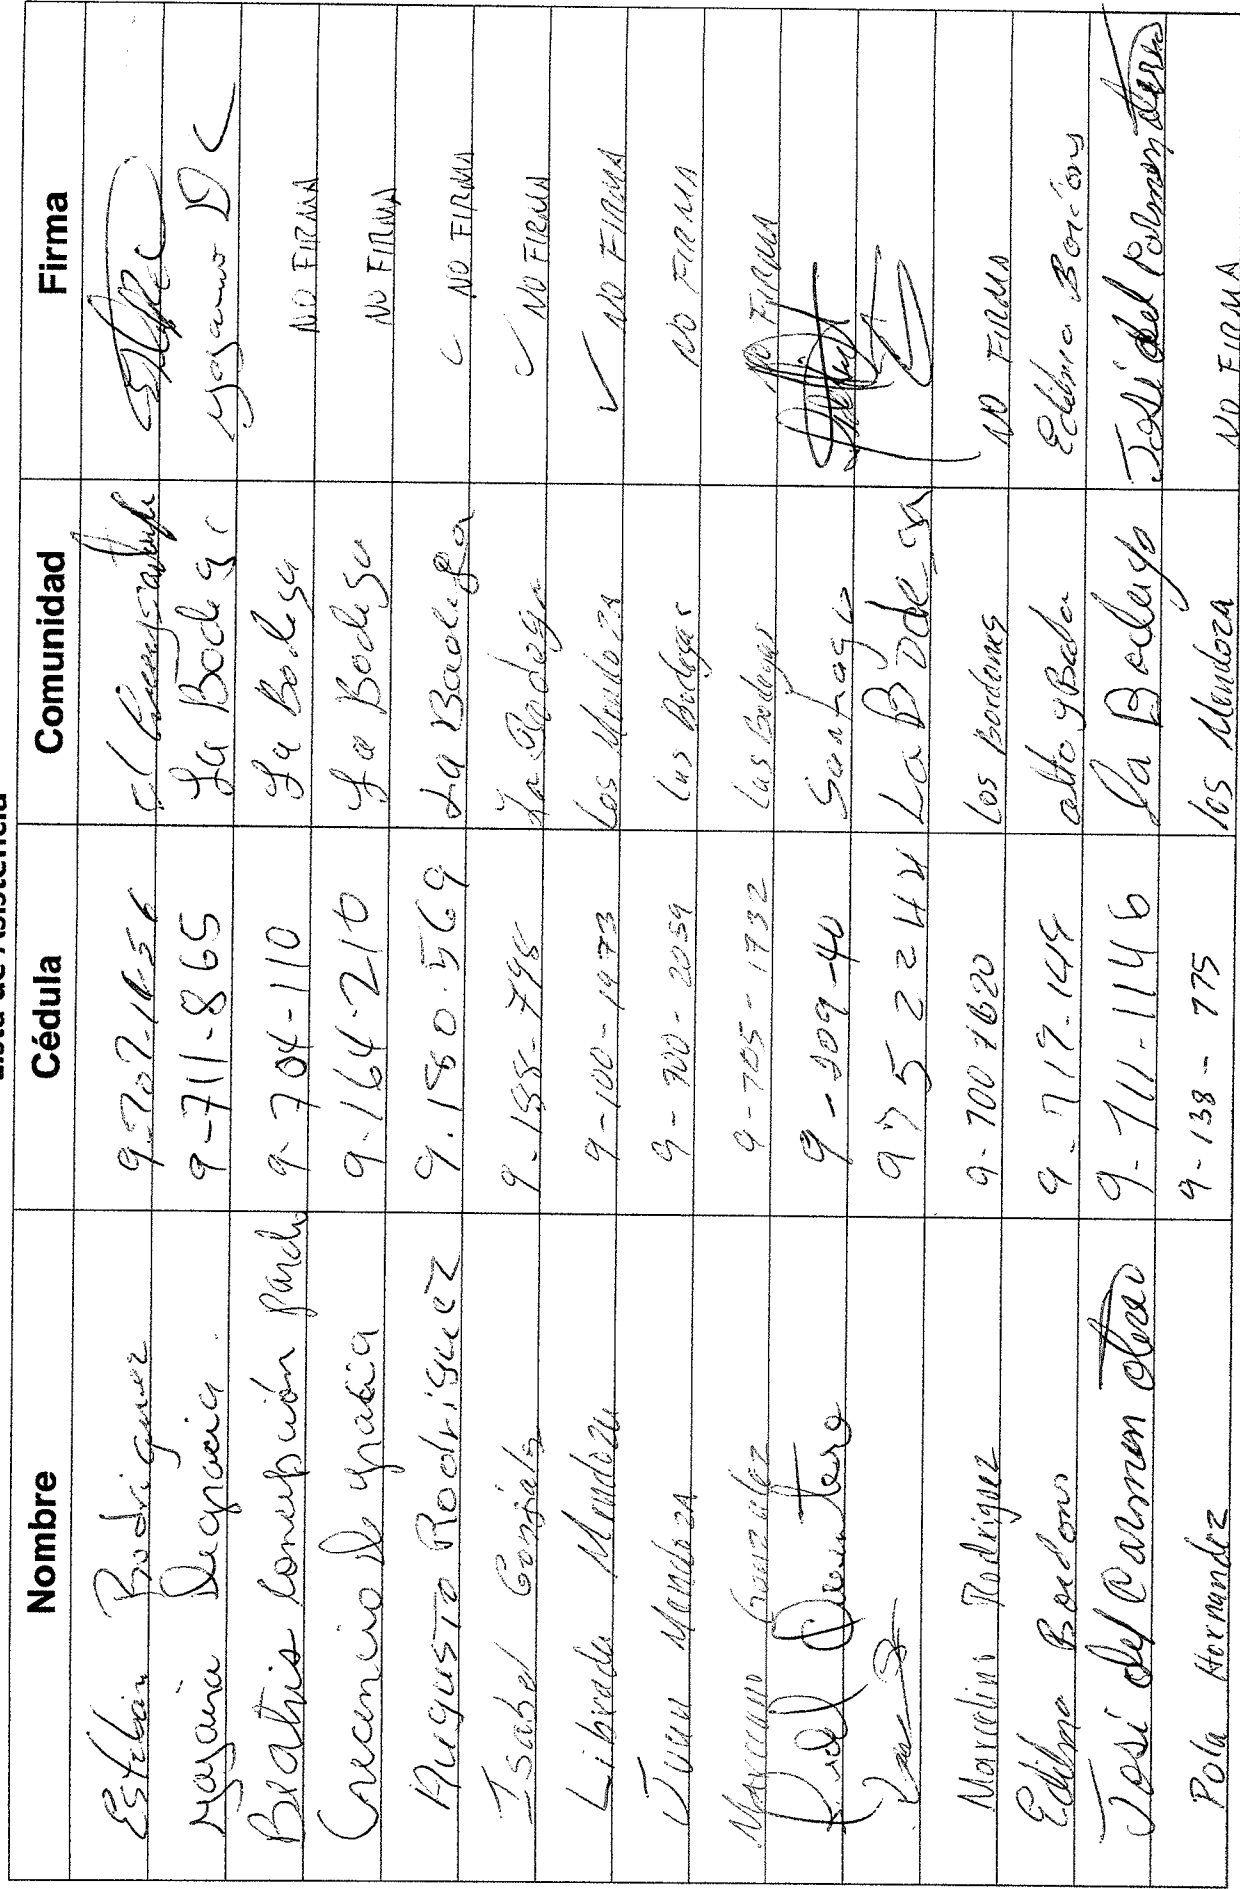 Lista de Asistencia
Nombre Cédula Comunidad Firma
Esteban Rodriguez 9-707-1656 El
Mayania Degracia. 9-711-865 La Bodega
Beathis Concepción pardo 9-704-110 La Bodega NO FIRMA
Crecencio De gracia 9-164-210 La Bodega NO FIRMA
Augusto Roodriguez 9.180.569 La Baodega NO FIRMA
Isabel Gonzalez 9-188-798 La Bodega NO FIRMA
Librada Mendoza 9-100-1973 Los Mendoza NO FIRMA
Juan Mendoza 9-700-2059 Las Bodegas NO FIRMA
Marceano Gonzalez 9-705-1732 Las Bodegas NO FIRMA
Quintero 9-209-40 Santiago
975 2244 La B Odega
Marcelino Rodriguez 9-700 1620 Los Bordones NO FIRMA
Edilma Bordons 9-717-148 alto y Bada Edilma
José del Carmen otero 9-711-1146 La Bodega José del Carmen otero
Pola Hernandez 9-138-775 los Mendoza NO FIRMA